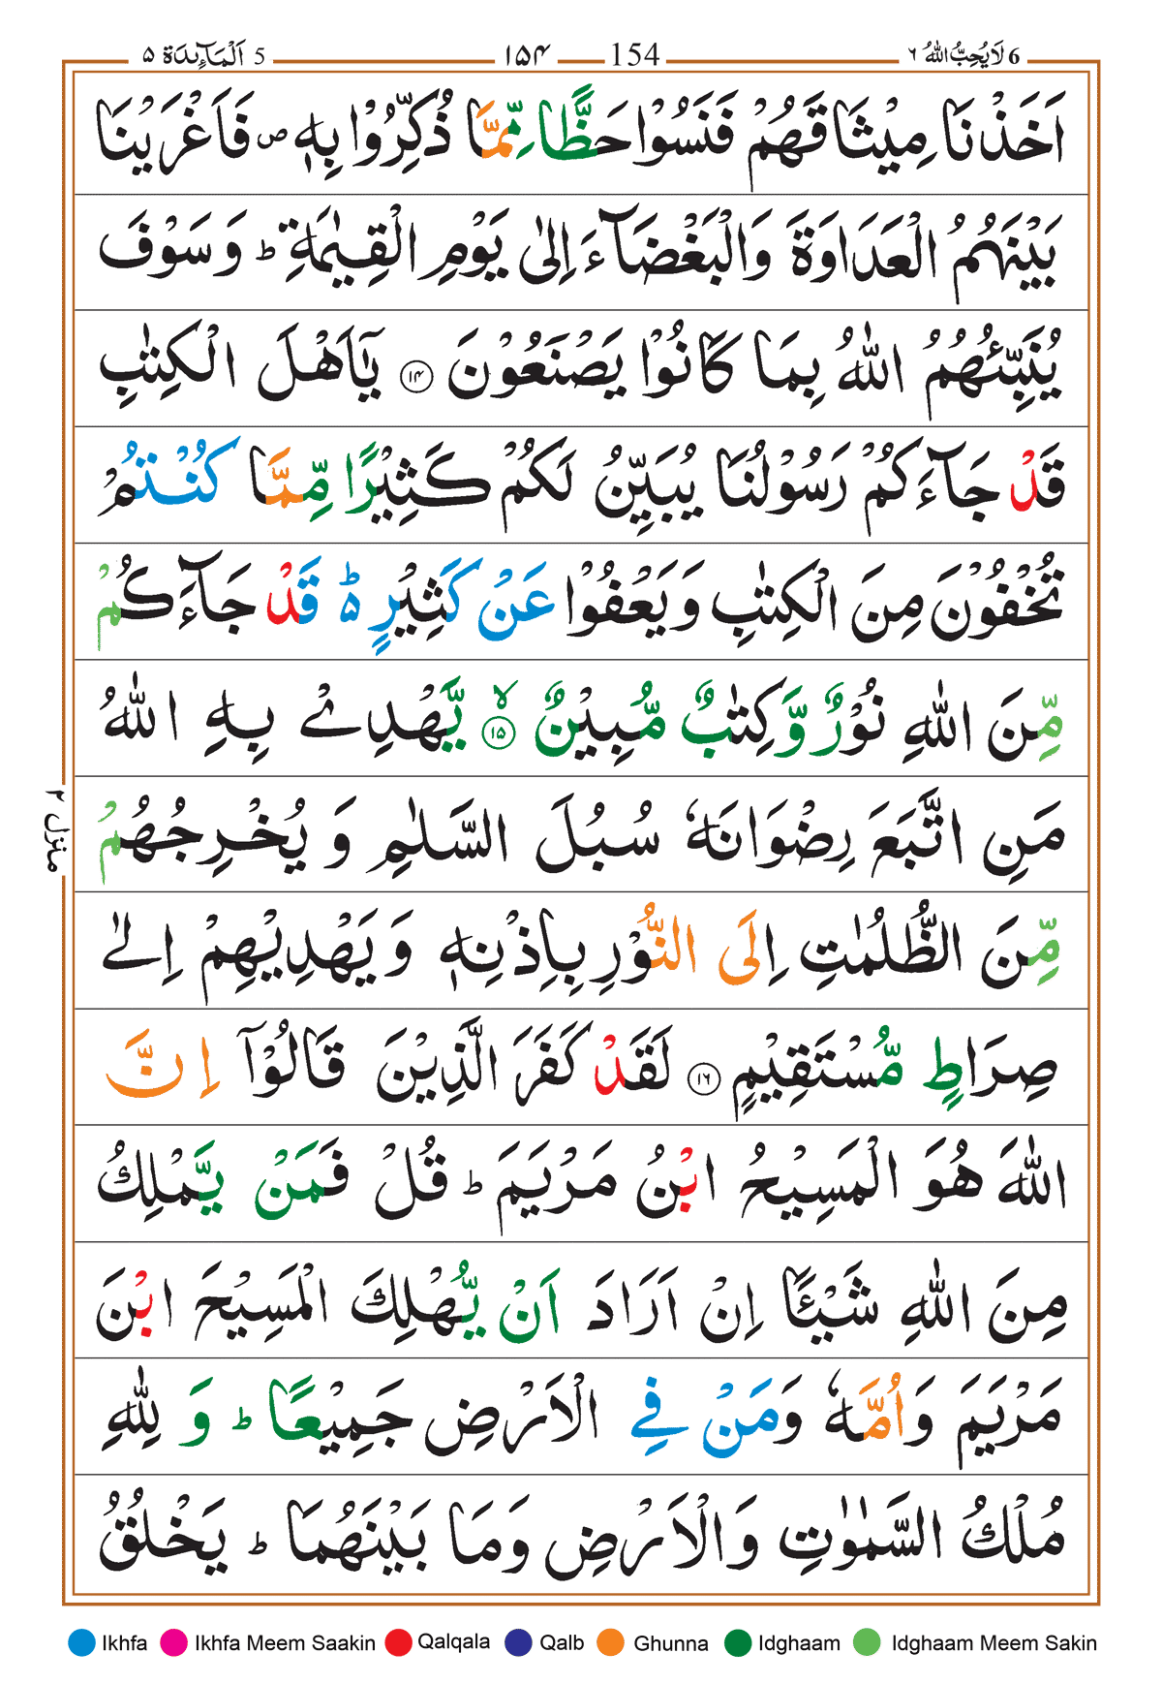 6 لَا يُحِبُّ اللهُ ٦ 154 ١٥۴ 5 اَلْمَآئِدَة ۵
اَخَذْنَا مِيْثَاقَهُمْ فَنَسُوْا حَظًّا مِّمَّا ذُكِّرُوْا بِهٖ ص فَاَغْرَيْنَا
بَيْنَهُمُ الْعَدَاوَةَ وَالْبَغْضَآءَ اِلٰى يَوْمِ الْقِيٰمَةِ ؕ وَسَوْفَ
يُنَبِّئُهُمُ اللهُ بِمَا كَانُوْا يَصْنَعُوْنَ ١۴ يٰٓاَهْلَ الْكِتٰبِ
قَدْ جَآءَكُمْ رَسُوْلُنَا يُبَيِّنُ لَكُمْ كَثِيْرًا مِّمَّا كُنْتُمْ
تُخْفُوْنَ مِنَ الْكِتٰبِ وَيَعْفُوْا عَنْ كَثِيْرٍ ۵ؕ قَدْ جَآءَكُمْ
مِّنَ اللهِ نُوْرٌ وَّكِتٰبٌ مُّبِيْنٌ ١۵ ۙ يَّهْدِىْ بِهِ اللهُ
مَنِ اتَّبَعَ رِضْوَانَهٗ سُبُلَ السَّلٰمِ وَيُخْرِجُهُمْ
مِّنَ الظُّلُمٰتِ اِلَى النُّوْرِ بِاِذْنِهٖ وَيَهْدِيْهِمْ اِلٰى
صِرَاطٍ مُّسْتَقِيْمٍ ١٦ لَقَدْ كَفَرَ الَّذِيْنَ قَالُوْٓا اِنَّ
اللهَ هُوَ الْمَسِيْحُ ابْنُ مَرْيَمَ ؕ قُلْ فَمَنْ يَّمْلِكُ
مِنَ اللهِ شَيْئًا اِنْ اَرَادَ اَنْ يُّهْلِكَ الْمَسِيْحَ ابْنَ
مَرْيَمَ وَاُمَّهٗ وَمَنْ فِى الْاَرْضِ جَمِيْعًا ؕ وَلِلّٰهِ
مُلْكُ السَّمٰوٰتِ وَالْاَرْضِ وَمَا بَيْنَهُمَا ؕ يَخْلُقُ
منزل ٢
Ikhfa Ikhfa Meem Saakin Qalqala Qalb Ghunna Idghaam Idghaam Meem Sakin